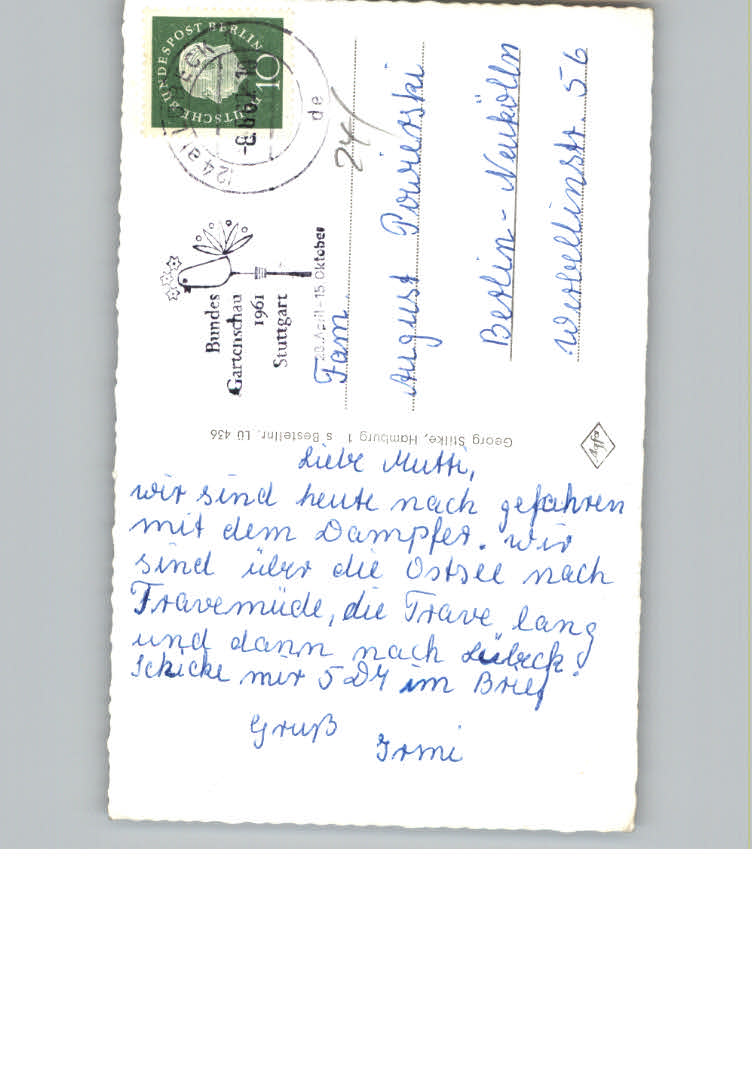 DEUTSCHE BUNDESPOST BERLIN
10
(24a) LÜBECK
de
24/
Bundes
Gartenschau
1961
Stuttgart
28.April-15 Oktober
Fam.
August Powierski
Berlin - Neukölln
Werbellinstr. 56
Georg Stilke, Hamburg 1 s Bestellnr. Lü 436
Agfa
Liebe Mutti,
wir sind heute nach gefahren
mit dem Dampfer. Wir
sind über die Ostsee nach
Travemüde, die Trave lang
und dann nach Lübeck.
Schicke mir 5 DM im Brief
Gruß
Irmi